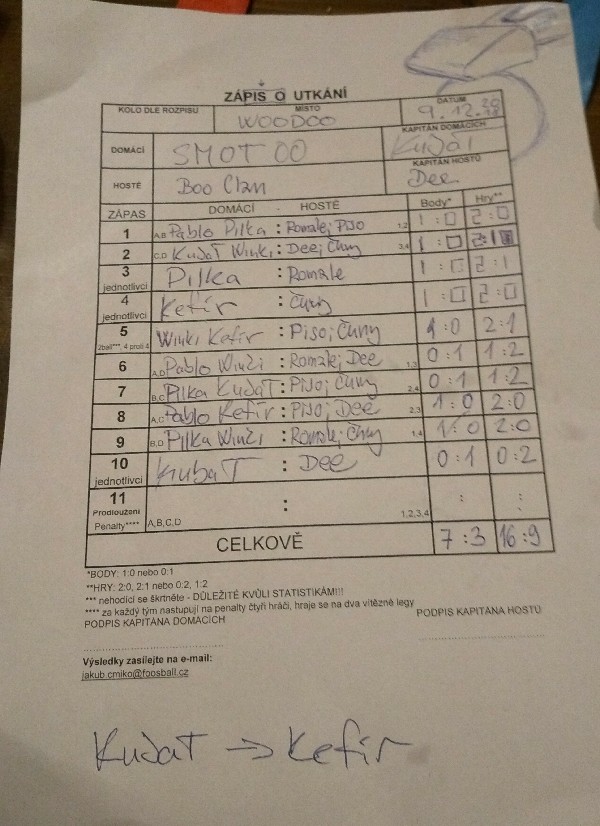 ZÁPIS O UTKÁNÍ
KOLO DLE ROZPISU MÍSTO DATUM
WOODOO 9.12.2018
DOMÁCÍ SMOT OO KAPITÁN DOMÁCÍCH Kubat
HOSTÉ Boo Clan KAPITÁN HOSTŮ Dee
ZÁPAS DOMÁCÍ - HOSTÉ Body* Hry**
1 A,B Pablo Pilka : Romale, Piso 1,2 1:0 2:0
2 C,D Kubat Winki : Dee, Čuny 3,4 1:0 2:1
3 jednotlivci Pilka : Romale 1:0 2:1
4 jednotlivci Kefír : Čuny 1:0 2:0
5 2ball***, 4 proti 4 Winki Kefír : Piso, Čuny 1:0 2:1
6 A,D Pablo Winki : Romale, Dee 1,3 0:1 1:2
7 B,C Pilka Kubat : Piso, Čuny 2,4 0:1 1:2
8 A,C Pablo Kefír : Piso, Dee 2,3 1:0 2:0
9 B,D Pilka Winki : Romale, Čuny 1,4 1:0 2:0
10 jednotlivci Kubat : Dee 0:1 0:2
11 Prodloužení Penalty**** A,B,C,D : 1,2,3,4 : :
CELKOVĚ 7:3 16:9
*BODY: 1:0 nebo 0:1
**HRY: 2:0, 2:1 nebo 0:2, 1:2
*** nehodící se škrtněte - DŮLEŽITÉ KVŮLI STATISTIKÁM!!!
**** za každý tým nastupují na penalty čtyři hráči, hraje se na dva vítězné legy
PODPIS KAPITÁNA DOMÁCÍCH PODPIS KAPITÁNA HOSTŮ
Výsledky zasílejte na e-mail:
jakub.cmiko@foosball.cz
Kubat → Kefír